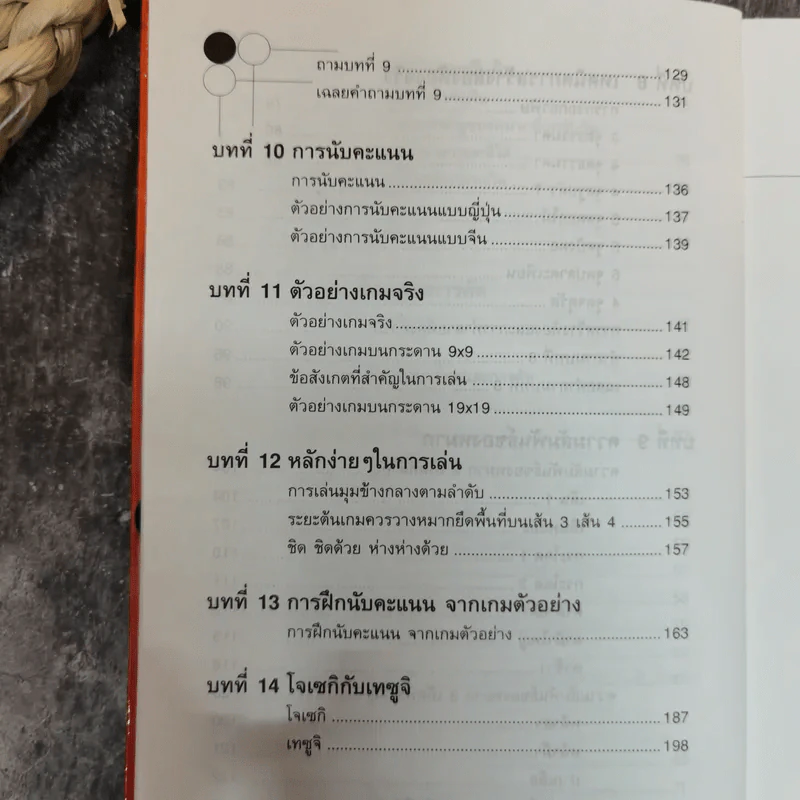 ถามบทที่ 9 ........ 129
เฉลยคำถามบทที่ 9 ........ 131
บทที่ 10 การนับคะแนน
การนับคะแนน ........ 136
ตัวอย่างการนับคะแนนแบบญี่ปุ่น ........ 137
ตัวอย่างการนับคะแนนแบบจีน ........ 139
บทที่ 11 ตัวอย่างเกมจริง
ตัวอย่างเกมจริง ........ 141
ตัวอย่างเกมบนกระดาน 9x9 ........ 142
ข้อสังเกตที่สำคัญในการเล่น ........ 148
ตัวอย่างเกมบนกระดาน 19x19 ........ 149
บทที่ 12 หลักง่ายๆในการเล่น
การเล่นมุมข้างกลางตามลำดับ ........ 153
ระยะต้นเกมควรวางหมากยึดพื้นที่บนเส้น 3 เส้น 4 ........ 155
ชิด ชิดด้วย ห่างห่างด้วย ........ 157
บทที่ 13 การฝึกนับคะแนน จากเกมตัวอย่าง
การฝึกนับคะแนน จากเกมตัวอย่าง ........ 163
บทที่ 14 โจเซกิกับเทซูจิ
โจเซกิ ........ 187
เทซูจิ ........ 198